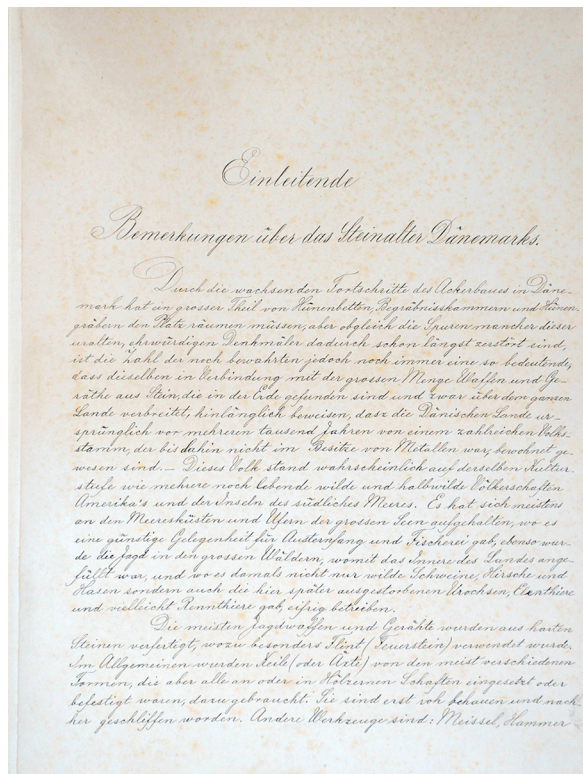 Einleitende
Bemerkungen über das Steinalter Dänemarks.
Durch die wachsenden Fortschritte des Ackerbaues in Däne-
mark hat in grosser Theil von Hünenbetten, Begräbnisskammern und Hünen-
gräbern den Platz räumen müssen, aber obgleich die Spuren mancher dieser
uralten, ehrwürdigen Denkmäler dadurch schon längst zerstört sind,
ist die Zahl der noch bewahrten jedoch noch immer eine so bedeutende,
dass dieselben in Verbindung mit der grossen Menge Waffen und Ge-
räthe aus Stein, die in der Erde gefunden sind und zwar über dem ganzen
Lande verbreitet, hinlänglich beweisen, dasz die Dänischen Lande ur-
sprünglich vor mehreren tausend Jahren von einem zahlreichen Volks-
stamm, der bis dahin nicht im Besitze von Metallen war, bewohnt ge-
wesen sind. — Dieses Volk stand wahrscheinlich auf derselben Kultur-
stufe wie mehrere noch lebende wilde und halbwilde Völkerschaften
Amerika's und der Inseln des südliches Meeres. Es hat sich meistens
an den Meeresküsten und Ufern der grossen Seen aufgehalten, wo es
eine günstige Gelegenheit für Austernfang und Fischerei gab, ebenso wur-
de die Jagd in den grossen Wäldern, womit das Innere des Landes ange-
füllt war, und wo es damals nicht nur wilde Schweine, Hirsche und
Hasen sondern auch die hier später ausgestorbenen Urochsen, Elenthiere
und vielleicht Rennthiere gab, eifrig betreiben.
Die meisten Jagdwaffen und Geräthe wurden aus harten
Steinen verfertigt, wozu besonders Flint (Feuerstein) verwendet wurde.
Im Allgemeinen wurden Keile (oder Äxte) von den meist verschiedenen
Formen, die aber alle an oder in Hölzernen Schaften eingesetzt oder
befestigt waren, dazu gebraucht. Sie sind erst roh behauen und nach-
her geschliffen worden. Andere Werkzeuge sind: Meissel, Hammer